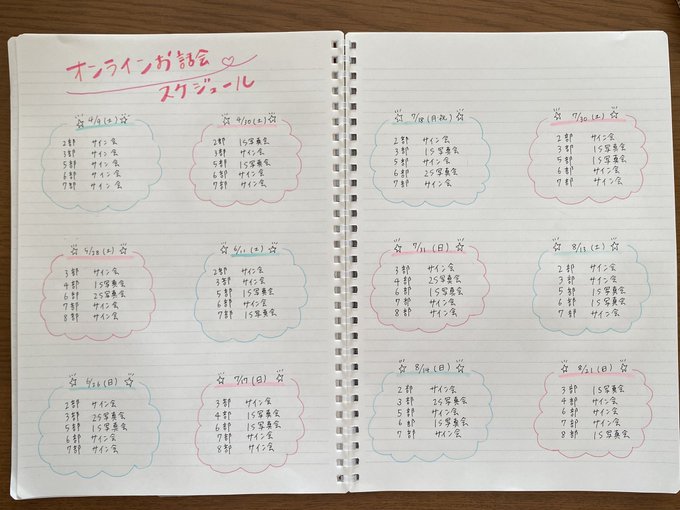 オンラインお話会♡
スケジュール
☆ 4/9(土) ☆
2部 サイン会
3部 サイン会
5部 サイン会
6部 サイン会
7部 サイン会
☆ 4/30(土) ☆
2部 1S写真会
3部 サイン会
5部 1S写真会
6部 サイン会
7部 サイン会
☆ 5/28(土) ☆
3部 サイン会
4部 1S写真会
6部 2S写真会
7部 サイン会
8部 サイン会
☆ 6/11(土) ☆
2部 サイン会
3部 サイン会
5部 1S写真会
6部 サイン会
7部 1S写真会
☆ 6/26(日) ☆
2部 サイン会
3部 2S写真会
5部 1S写真会
6部 サイン会
7部 サイン会
☆ 7/17(日) ☆
3部 サイン会
4部 1S写真会
6部 サイン会
7部 サイン会
8部 サイン会
☆ 7/18(月・祝) ☆
2部 サイン会
3部 1S写真会
5部 サイン会
6部 2S写真会
7部 サイン会
☆ 7/30(土) ☆
2部 サイン会
3部 1S写真会
5部 1S写真会
6部 サイン会
7部 サイン会
☆ 7/31(日) ☆
3部 サイン会
4部 2S写真会
6部 1S写真会
7部 サイン会
8部 サイン会
☆ 8/13(土) ☆
2部 サイン会
3部 サイン会
5部 1S写真会
6部 1S写真会
7部 サイン会
☆ 8/14(日) ☆
2部 サイン会
3部 2S写真会
5部 サイン会
6部 サイン会
7部 サイン会
☆ 8/21(日) ☆
3部 1S写真会
4部 サイン会
6部 サイン会
7部 サイン会
8部 1S写真会